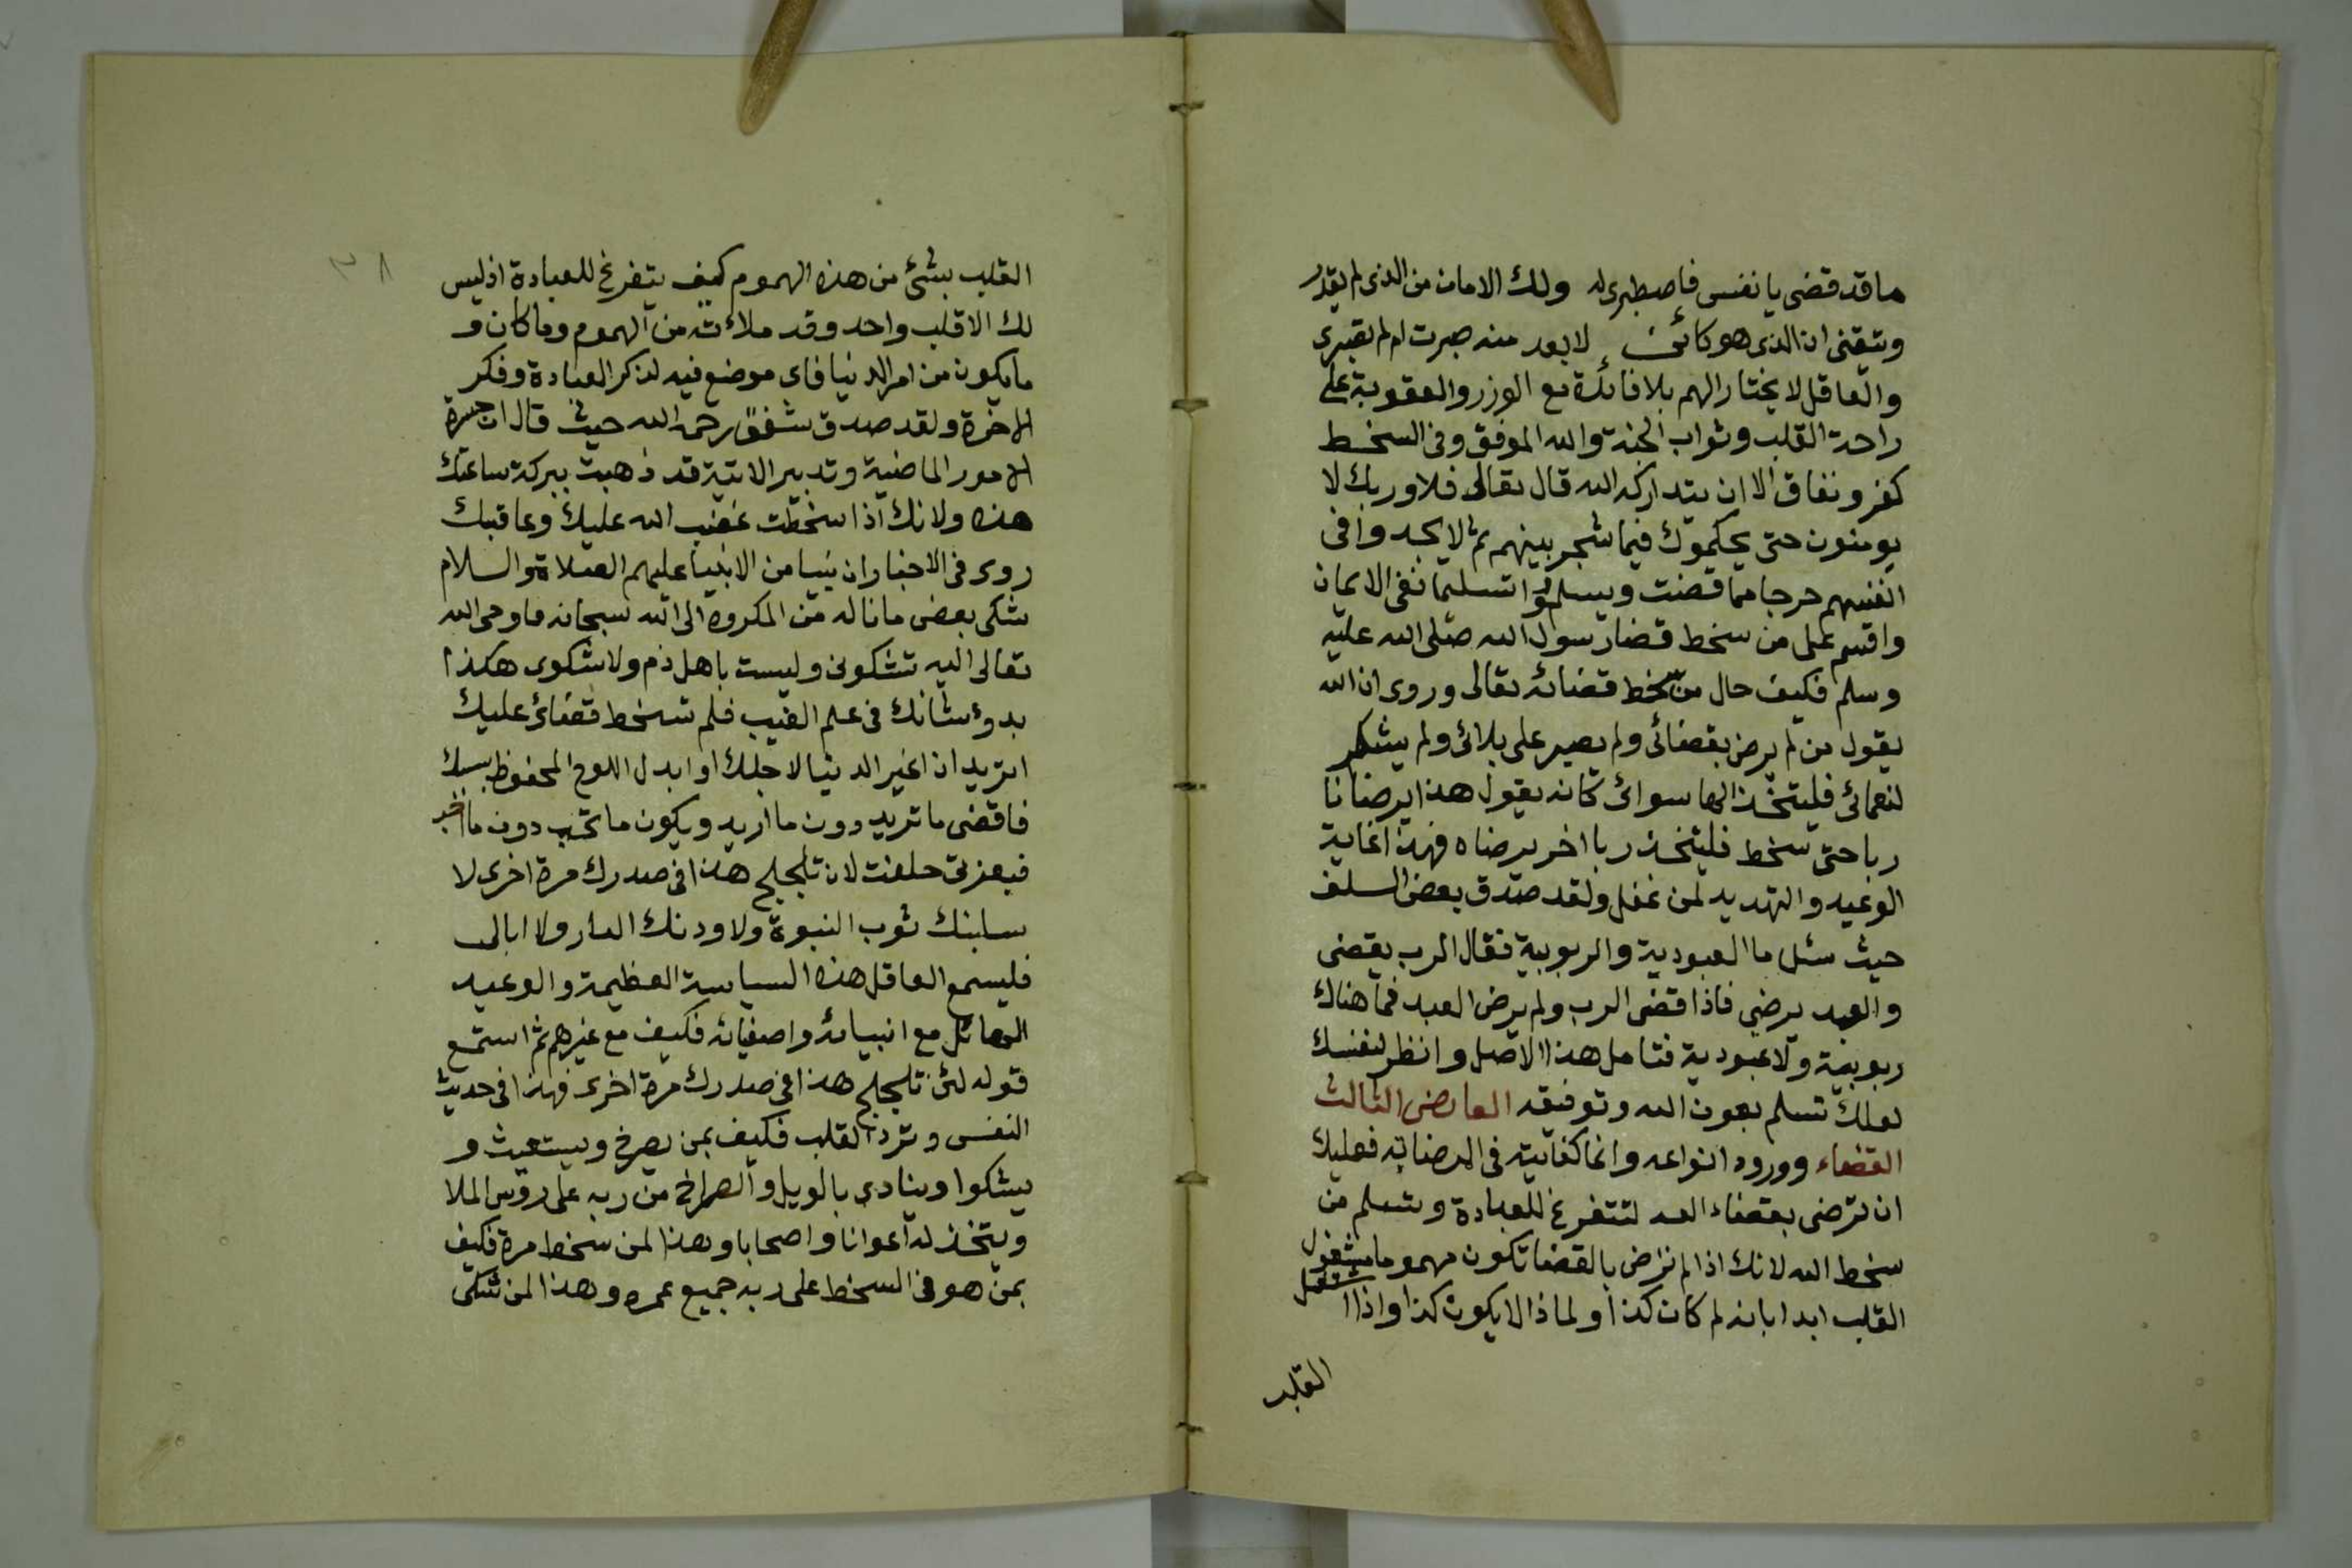 ما قد قضى يا نفس فاصطبرى له ولك الامان من الذى لم يقدر
وتيقنى ان الذى هو كائن لا بعد منه صبرت ام لم تصبرى
والعاقل لا يختار الهم بلا فائدة مع الوزر والعقوبة على
راحة القلب وثواب الجنة والله الموفق وفى السخط
كفر ونفاق الا ان يتداركه الله قال تعالى فلا وربك لا
يومنون حتى يحكموك فيما شجر بينهم ثم لا يجدوا فى
انفسهم حرجا مما قضت ويسلموا تسليما نفى الايمان
واقسم على من سخط قضا رسول الله صلى الله عليه
وسلم فكيف حال من سخط قضائه تعالى وروى ان الله
يقول من لم يرض بقضائى ولم يصبر على بلائى ولم يشكر
لنعمائى فليتخذ الها سوائى كانه يقول هذا يرضانا
ربا حتى سخط فليتخذ ربا اخر يرضاه فهذا غاية
الوعيد والتهديد لمن غفل ولقد صدق بعض السلف
حيث سئل ما العبودية والربوبية فقال الرب يقضى
والعبد يرضى فاذا قضى الرب ولم يرض العبد فما هناك
ربوبية ولا عبودية فتامل هذا الاصل وانظر لنفسك
لعلك تسلم بعون الله وتوفيقه العارض الثالث
القضاء وورود انواعه وانما كفايته فى الرضا به فعليك
ان ترضى بقضاء الله لتتفرغ للعبادة وتسلم من
سخط الله لانك اذا لم ترض بالقضا تكون مهموما مشغول
القلب ابدا بانه لم كان كذا ولماذا لا يكون كذا واذا اشتغل
القلب
٣٨
القلب بشئ من هذه الهموم كيف يتفرغ للعبادة اذ ليس
لك الا قلب واحد وقد ملاته من الهموم وما كان و
ما يكون من امر الدنيا فاى موضع فيه لذكر العبادة وفكر
الاخرة ولقد صدق شقيق رحمه الله حيث قال ان حسرة
الامور الماضية وتدبير الاتية قد ذهبت ببركة ساعتك
هذه ولانك اذا سخطت غضب الله عليك وعاقبك
روى فى الاخبار ان نبيا من الانبيا عليهم الصلاة والسلام
شكى بعض ما ناله من المكروه الى الله سبحانه فاوحى الله
تعالى اليه تشكونى وليست باهل ذم ولا شكوى هكذا
بدؤ شانك فى علم الغيب فلم تسخط قضائى عليك
اتريد ان اغير الدنيا لاجلك او ابدل اللوح المحفوظ بسببك
فاقضى ما تريد دون ما اريد ويكون ما تحب دون ما احب
فبعزتى حلفت لان تلجلج هذا فى صدرك مرة اخرى لا
سلبنك ثوب النبوة ولاوردنك النار ولا ابالى
فليسمع العاقل هذه السياسة العظيمة والوعيد
الهائل مع انبيائه واصفيائه فكيف مع غيرهم ثم استمع
قوله لئن تلجلج هذا فى صدرك مرة اخرى فهذا فى حديث
النفس وتردد القلب فكيف بمن يصرخ ويستغيث و
يشكوا وينادى بالويل والصراخ من ربه على رؤس الملا
ويتخذ له اعوانا واصحابا وهذا لمن سخط مرة فكيف
بمن هو فى السخط على ربه جميع عمره وهذا لمن شكى